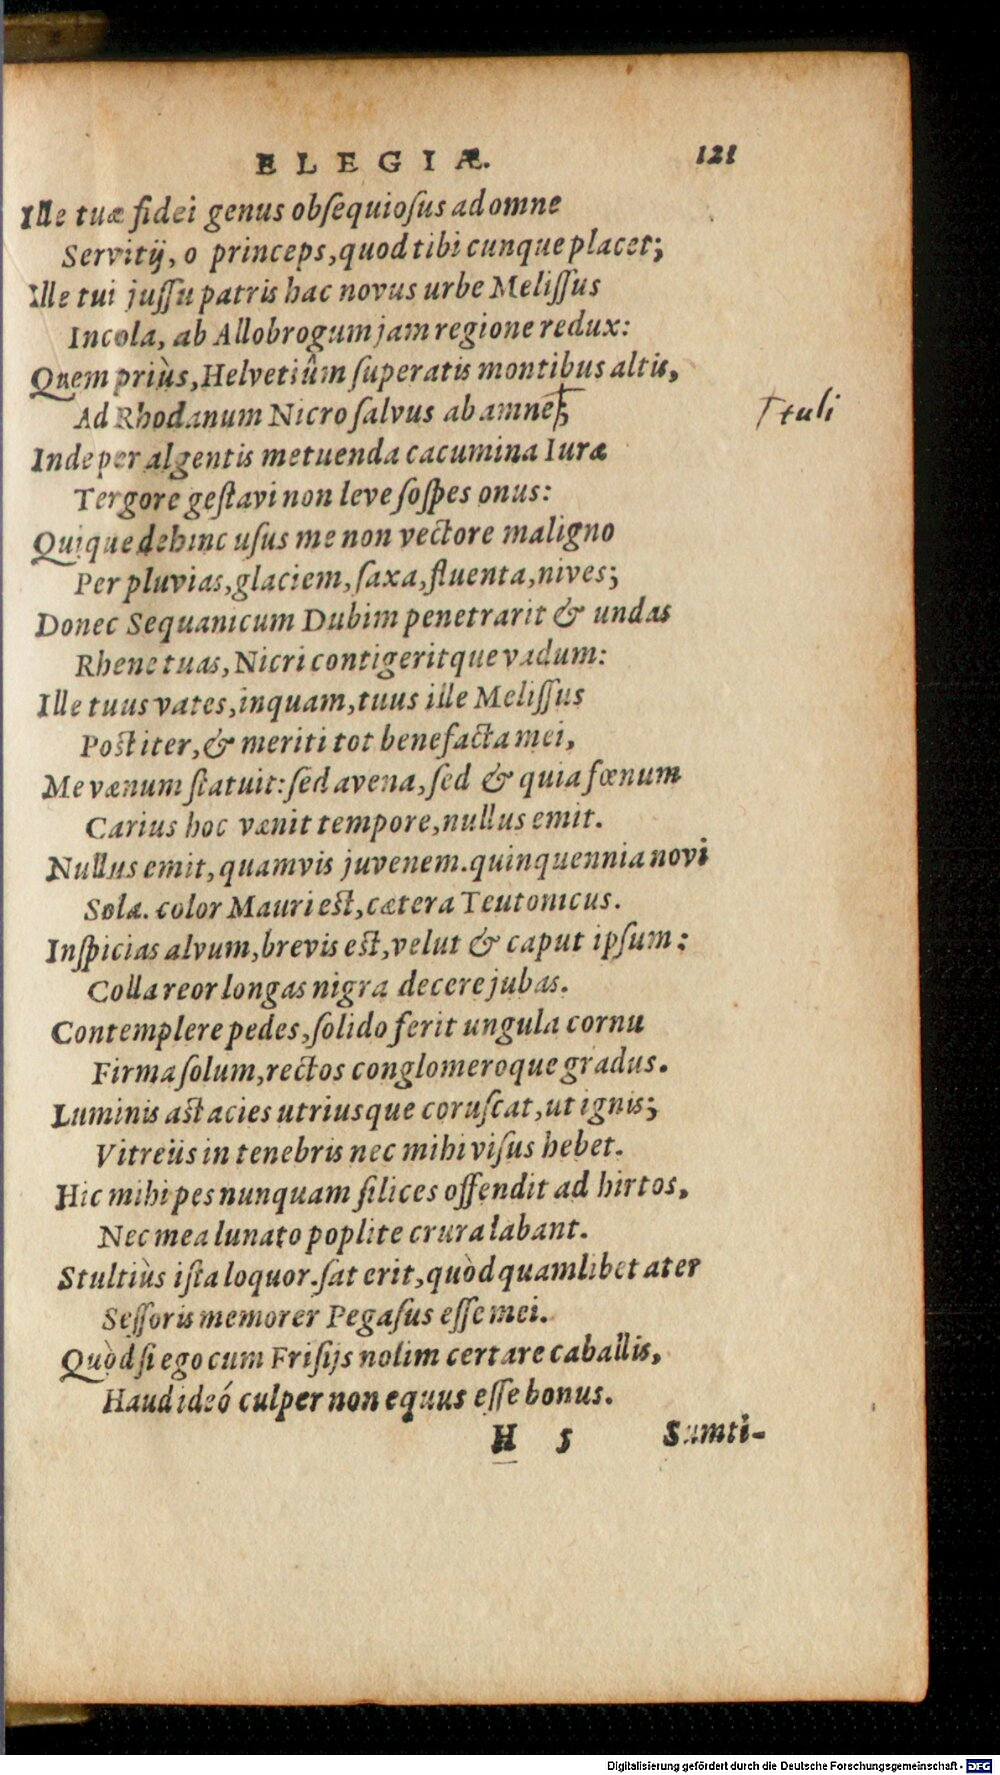 ELEGIÆ. 121
Ille tuæ fidei genus obſequioſus ad omne
Servitij, o princeps, quod tibi cunque placet;
Ille tui juſſu patris hac novus urbe Meliſſus
Incola, ab Allobrogum jam regione redux:
Quem priùs, Helvetiûm ſuperatis montibus altis,
Ad Rhodanum Nicro ſalvus ab amne; † tuli
Inde per algentis metuenda cacumina Iuræ
Tergore geſtavi non leve ſoſpes onus:
Quique dehinc uſus me non vectore maligno
Per pluvias, glaciem, ſaxa, fluenta, nives;
Donec Sequanicum Dubim penetrarit & undas
Rhene tuas, Nicri contigeritque vadum:
Ille tuus vates, inquam, tuus ille Meliſſus
Poſt iter, & meriti tot benefacta mei,
Me vænum ſtatuit: ſed avena, ſed & quia fœnum
Carius hoc vænit tempore, nullus emit.
Nullus emit, quamvis juvenem. quinquennia novi
Sola. color Mauri eſt, cætera Teutonicus.
Inſpicias alvum, brevis eſt, velut & caput ipſum:
Colla reor longas nigra decere jubas.
Contemplere pedes, ſolido ferit ungula cornu
Firma ſolum, rectos conglomeroque gradus.
Luminis aſt acies utriusque coruſcat, ut ignis;
Vitreiis in tenebris nec mihi viſus hebet.
Hic mihi pes nunquam ſilices offendit ad hirtos,
Nec mea lunato poplite crura labant.
Stultiùs iſta loquor. ſat erit, quòd quamlibet ater
Seſſoris memorer Pegaſus eſſe mei.
Quòd ſi ego cum Friſijs nolim certare caballis,
Haud ideó culper non equus eſſe bonus.
H 5 Sumti-
Digitalisierung gefördert durch die Deutsche Forschungsgemeinschaft - DFG